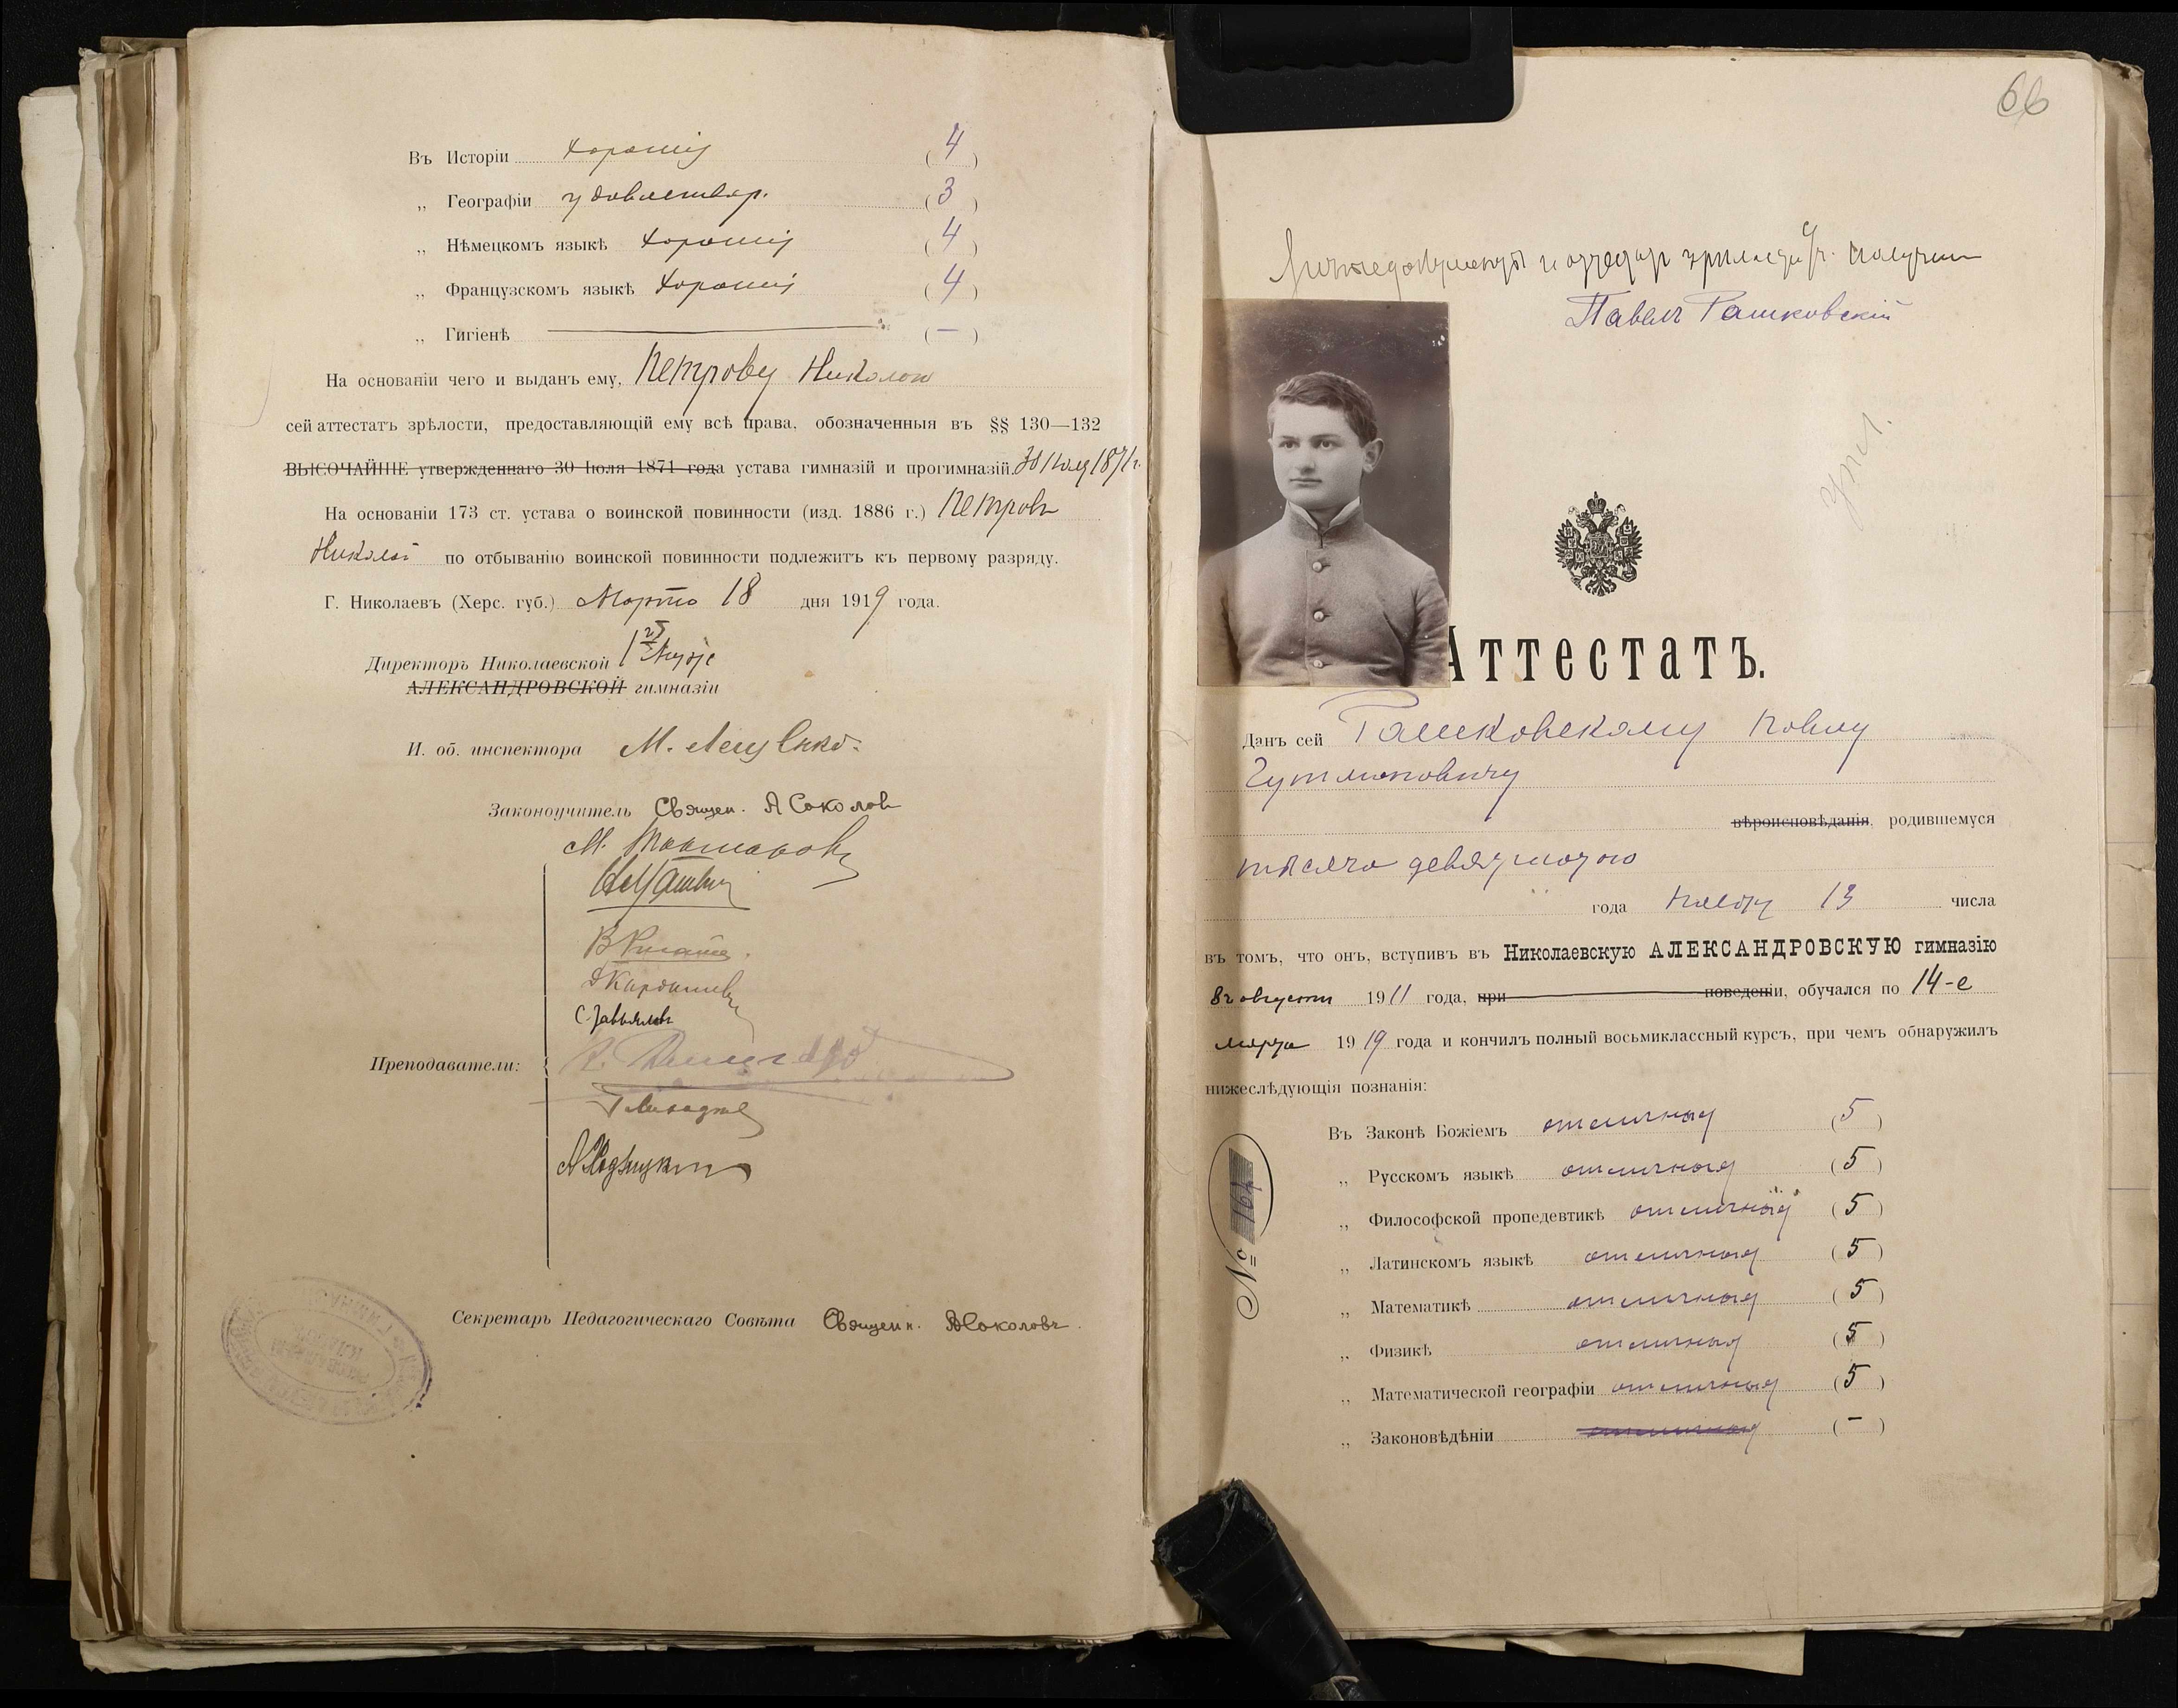 Въ Исторіи хорошія (4)
„ Географіи удовлетвор. (3)
„ Нѣмецкомъ языкѣ хорошія (4)
„ Французскомъ языкѣ хорошія (4)
„ Гигіенѣ (—)
На основаніи чего и выданъ ему, Петрову Николаю
сей аттестатъ зрѣлости, предоставляющій ему всѣ права, обозначенныя въ §§ 130—132
ВЫСОЧАЙШЕ утвержденнаго 30 Іюля 1871 года устава гимназій и прогимназій. 30 Іюля 1871 г.
На основаніи 173 ст. устава о воинской повинности (изд. 1886 г.) Петровъ
Николай по отбыванію воинской повинности подлежитъ къ первому разряду.
Г. Николаевъ (Херс. губ.) Марта 18 дня 1919 года.
Директоръ Николаевской 1
АЛЕКСАНДРОВСКОЙ гимназіи
И. об. инспектора М.
Законоучитель Священ. А Соколов
М.
С. Завьялов
Преподаватели:
Секретарь Педагогическаго Совѣта Священн. А Соколовъ.
66
и аттестат зрилости получил
Павелъ Рашковскій
Аттестатъ.
Данъ сей Рашковскому Павлу
Гутмановичу
вѣроисповѣданія, родившемуся
тысяча девятисотого
года 13 числа
въ томъ, что онъ, вступивъ въ Николаевскую АЛЕКСАНДРОВСКУЮ гимназію
въ августѣ 1911 года, при поведеніи, обучался по 14-е
марта 1919 года и кончилъ полный восьмиклассный курсъ, при чемъ обнаружилъ
нижеслѣдующія познанія:
Въ Законѣ Божіемъ отличныя (5)
„ Русскомъ языкѣ отличныя (5)
„ Философской пропедевтикѣ отличныя (5)
„ Латинскомъ языкѣ отличныя (5)
„ Математикѣ отличныя (5)
„ Физикѣ отличныя (5)
„ Математической географіи отличныя (5)
„ Законовѣдѣніи отличныя (-)
№ 164